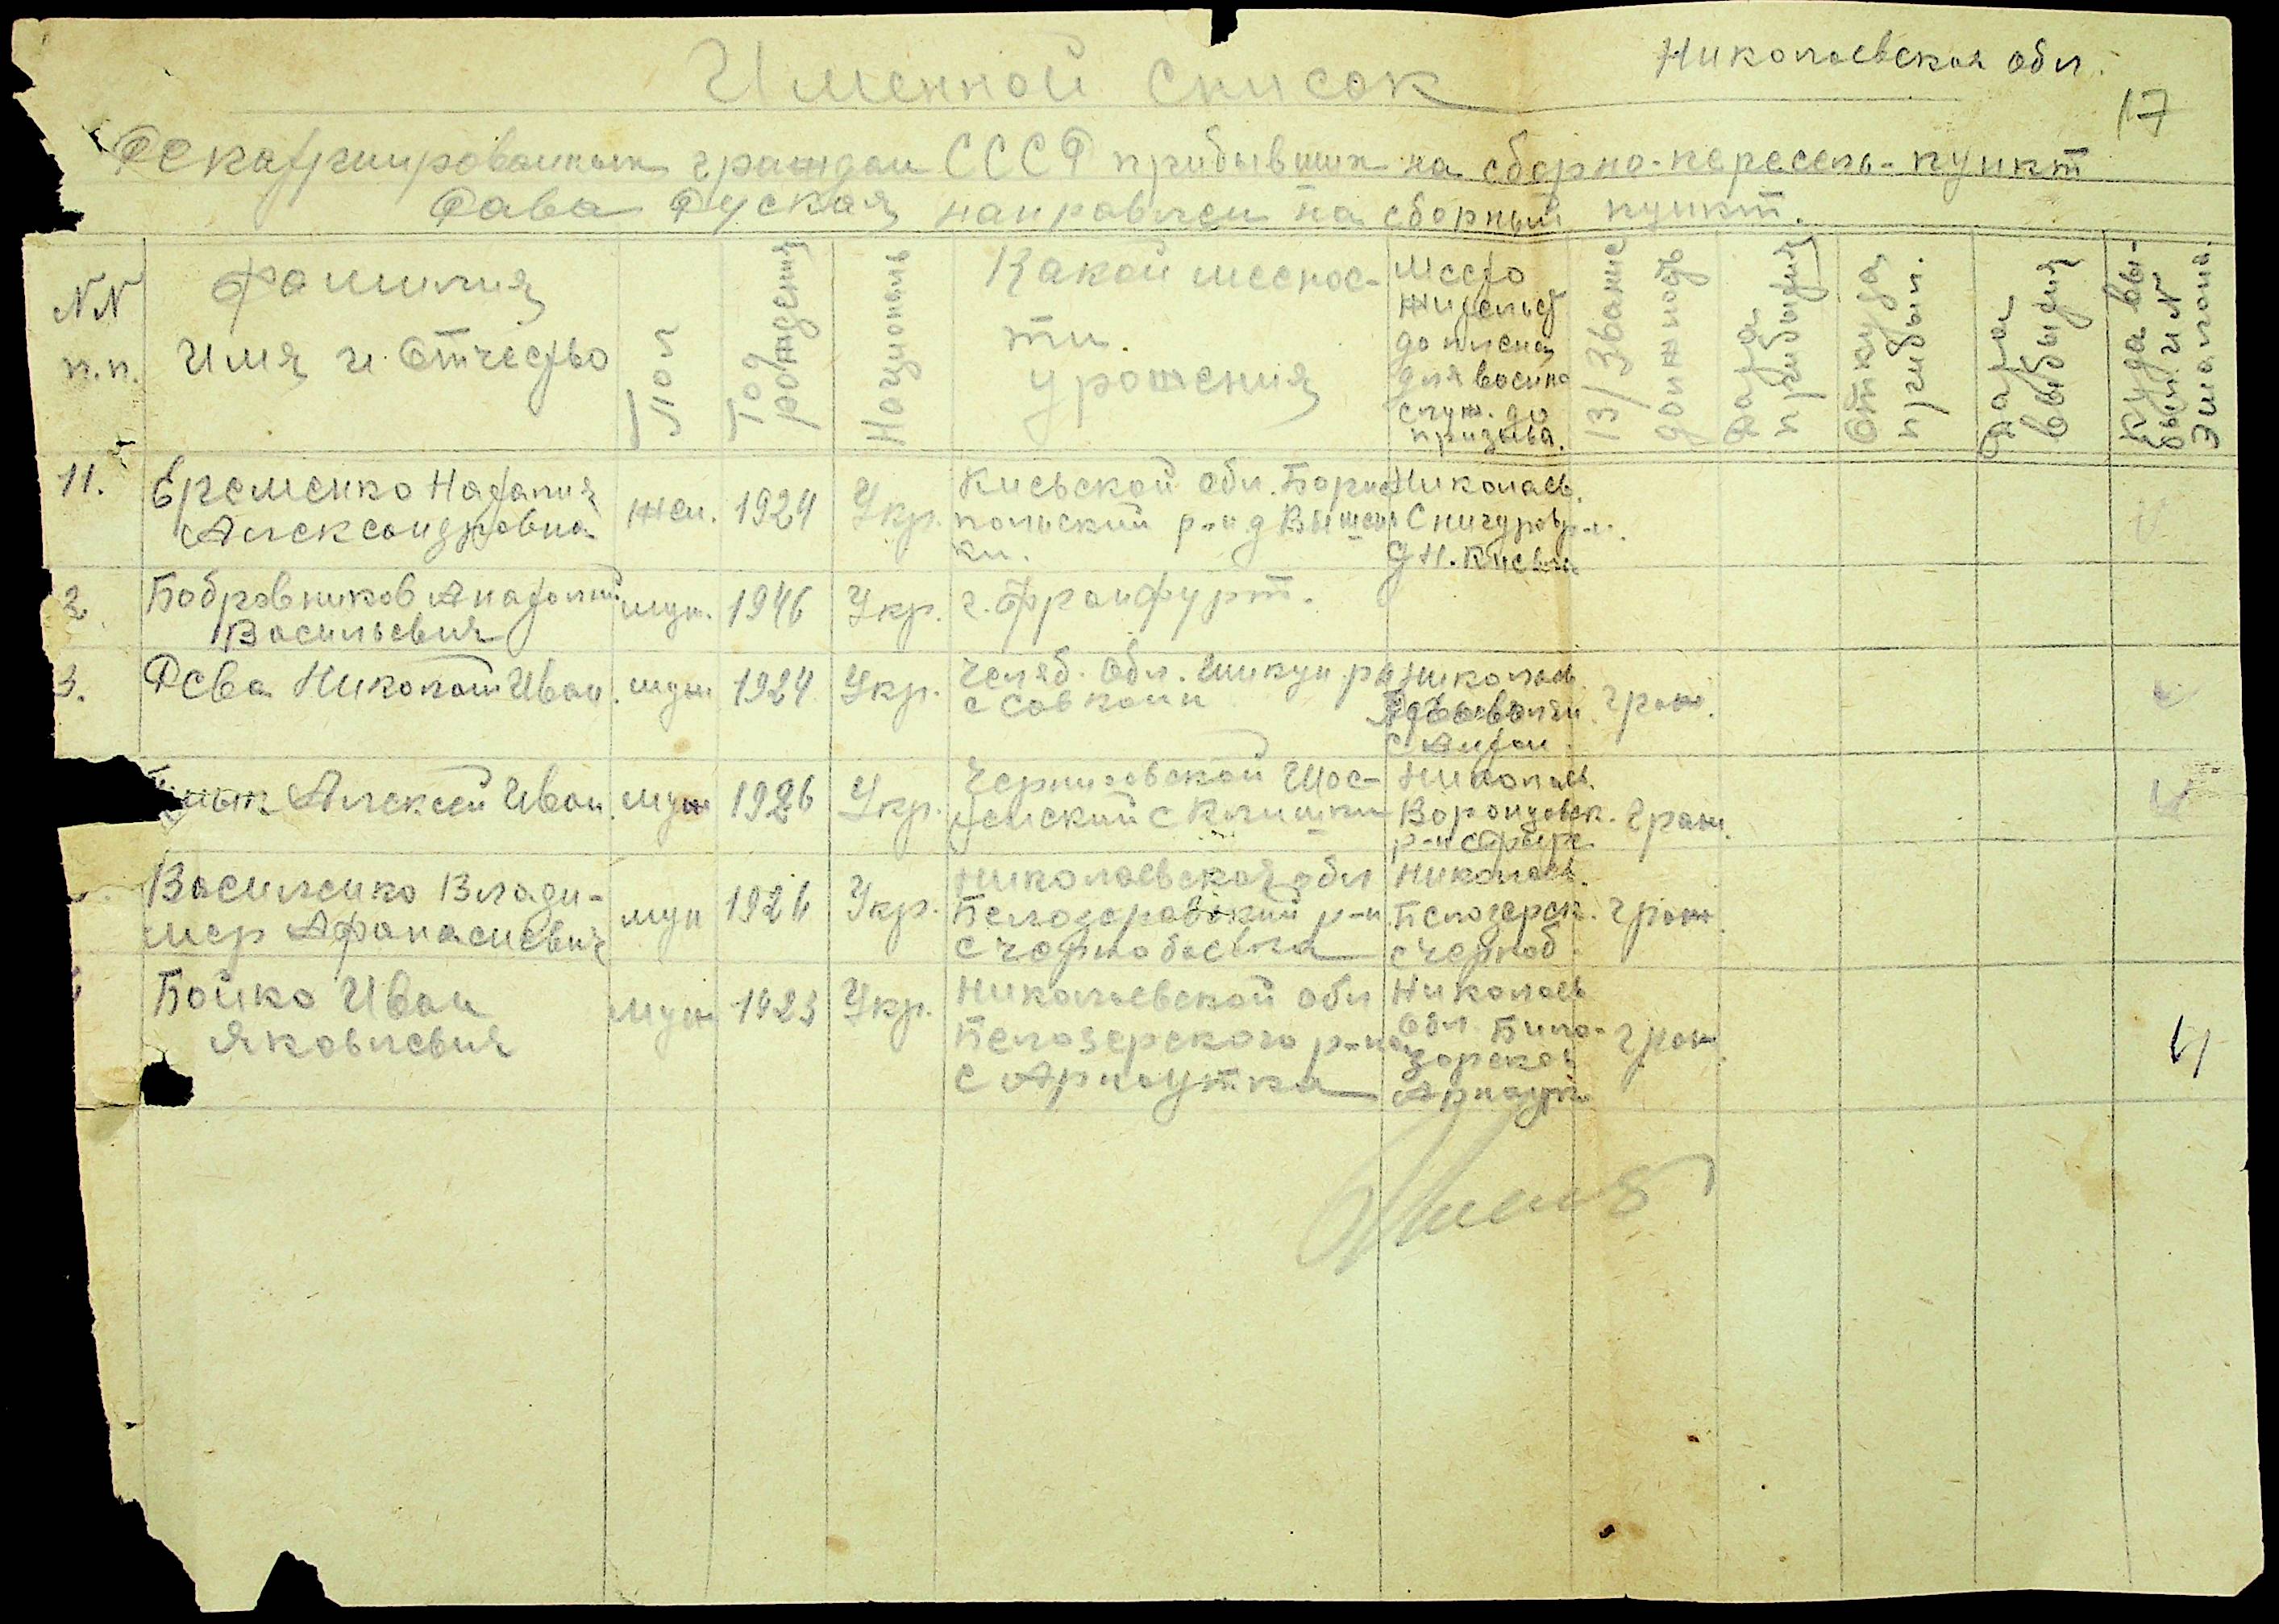 Николаевская обл.
17
Именной список
Репатриированных граждан СССР прибывших на сборно-пересель-пункт
Рава Руская направлен на сборный пункт.
NN
п.п.
Фамилия
Имя и Отчество
Пол
Год
рождения
Националь
Какой меснос-
ти.
урожения
Место
жительст
до плена
для воен
служ. до
призыва.
В/Звание
должность
Дата
прибытия
Откуда
прибыл.
Дата
выбытия
Куда вы-
был. и N
Эшалона.
11.
Еременко Наталия
Александровна
жен.
1924
Укр.
Киевской обл. Борис
польский р-н д Вишень
ки.
Николаев.
Снигуров р-н.
д Н. Киевка
2
Бобровников Анатолий
Васильевич
муж.
1946
Укр.
г. Франфурт.
3.
Рева Николай Иван.
муж
1924
Укр.
Челяб. Обл. р-н
с Совхоз
Николаев
граж.
Алексей Иван.
муж
1926
Укр.
Черниговской Шос-
тенский с
Николаев.
Воронцовск.
р-н
граж.
Василенко Влади-
мер Афанасиевич
муж
1926
Укр.
Николаевская обл
Белозеровский р-н
с Чернобаевка
Николаев.
Белозерск.
с Черноб.
граж.
Бойко Иван
Яковлевич
муж
1923
Укр.
Николаевской обл
Белозерского р-на
с Арнаутка
Николаев
обл. Било-
зорской
Арнаутк
граж.